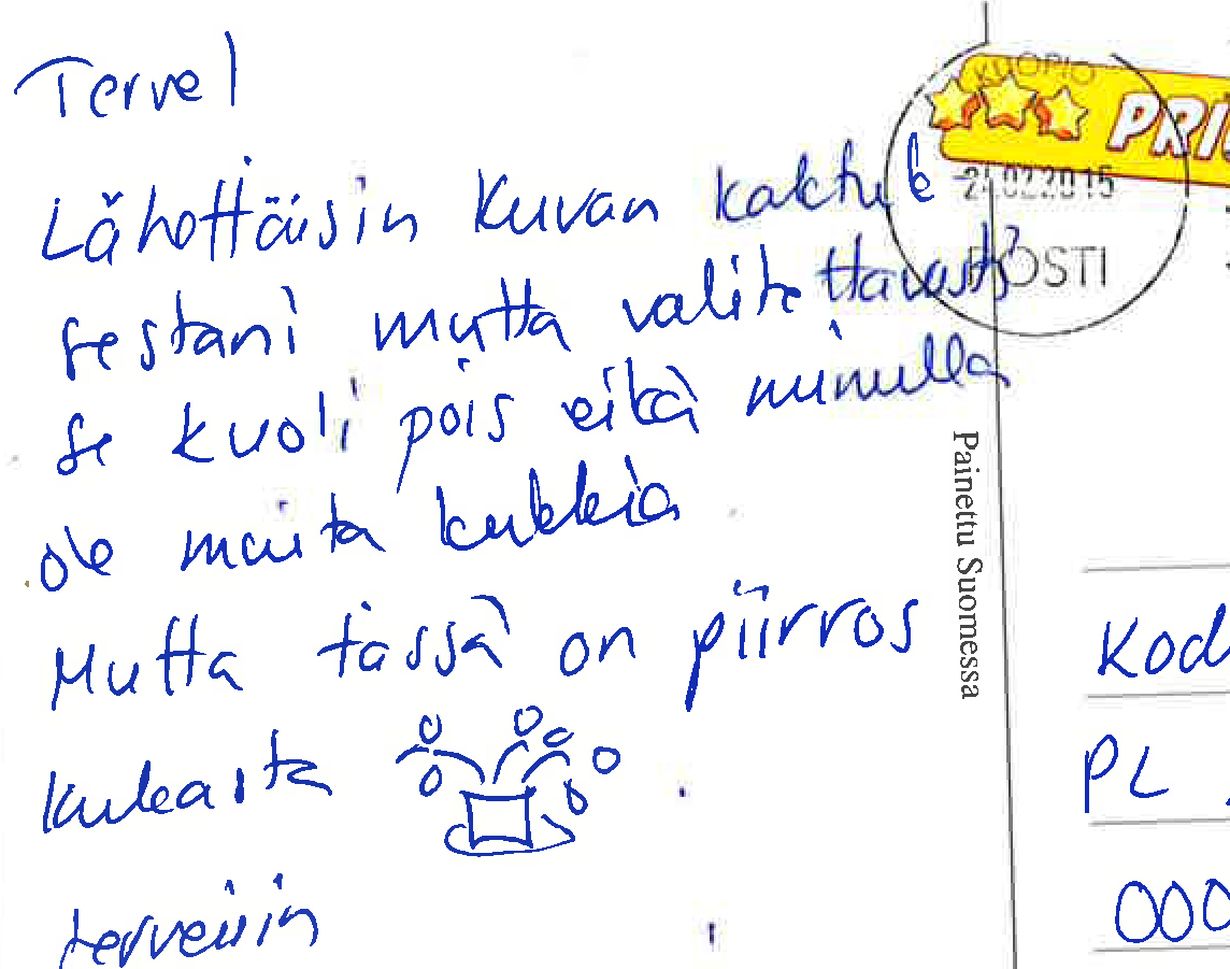 Terve!
Lähettäisin kuvan kaktuk
sestani mutta valitettavasti
se kuoli pois eikä minulla
ole muita kukkia
Mutta tässä on piirros
kukasta
terveisin
KUOPIO
PRI
02.2015
POSTI
Painettu Suomessa
Kod
PL
000